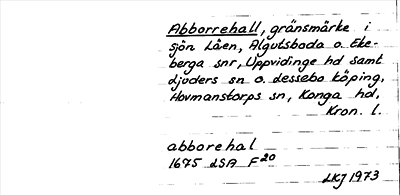 Abborrehall, gränsmärke i
sjön Låen, Algutsboda o. Eke-
berga snr, Uppvidinge hd samt
djuders sn o. dessebo köping,
Hovmanstorps sn, Konga hd,
Kron. l.
abborehal
1675 LSA F20
LKJ 1973